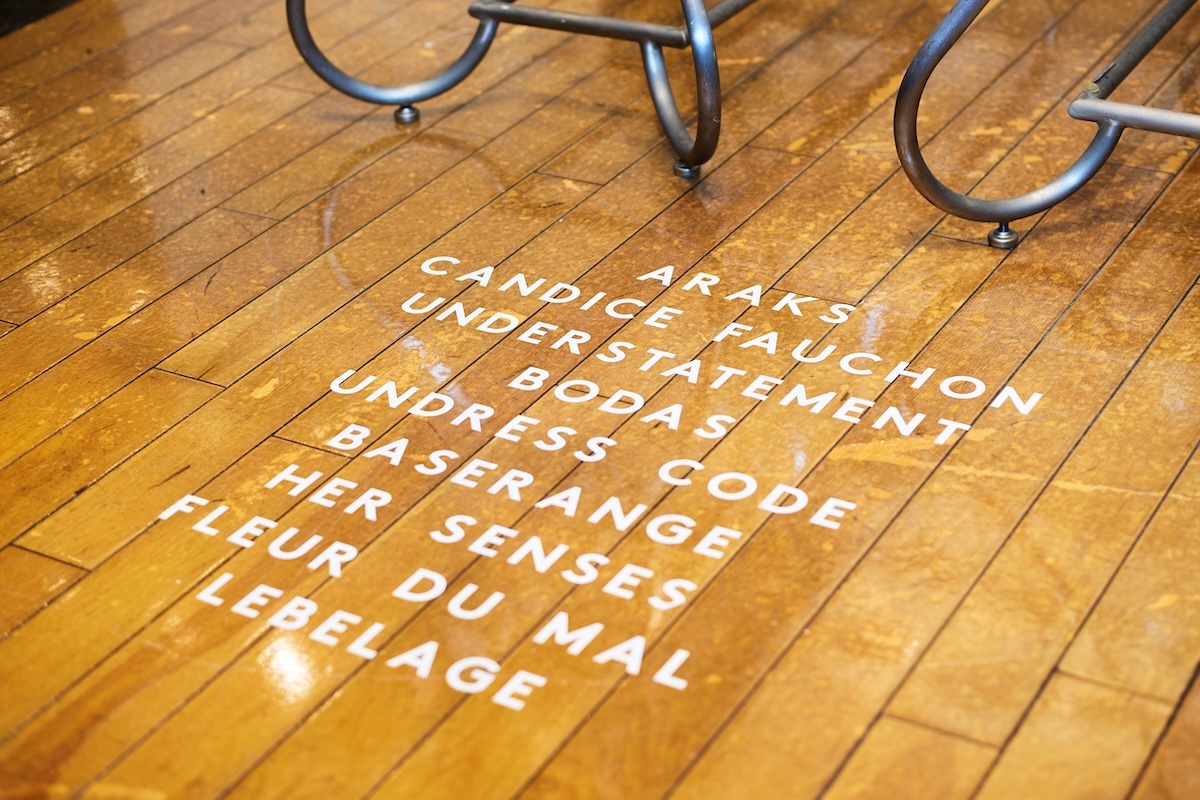 ARAKS
CANDICE FAUCHON
UNDERSTATEMENT
BODAS
UNDRESS CODE
BASERANGE
HER SENSES
FLEUR DU MAL
LEBELAGE